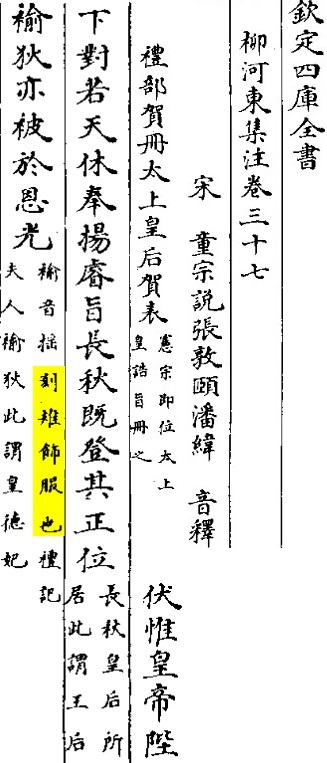 欽定四庫全書
柳河東集注卷三十七
宋 童宗説張敦頤潘緯 音釋
禮部賀冊太上皇后賀表
憲宗即位太上
皇誥旨冊之
伏惟皇帝陛
下對若天休奉揚睿旨長秋既登其正位
長秋皇后所
居此謂王后
褕狄亦被於恩光
褕音揺刻雉飾服也禮記
夫人褕狄此謂皇德妃